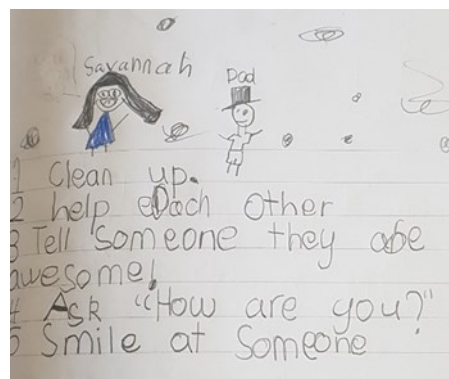 Savannah
Dad
1 Clean up.
2 help each other
3 Tell Someone they are
awesome!
4 Ask "How are you?"
5 Smile at Someone